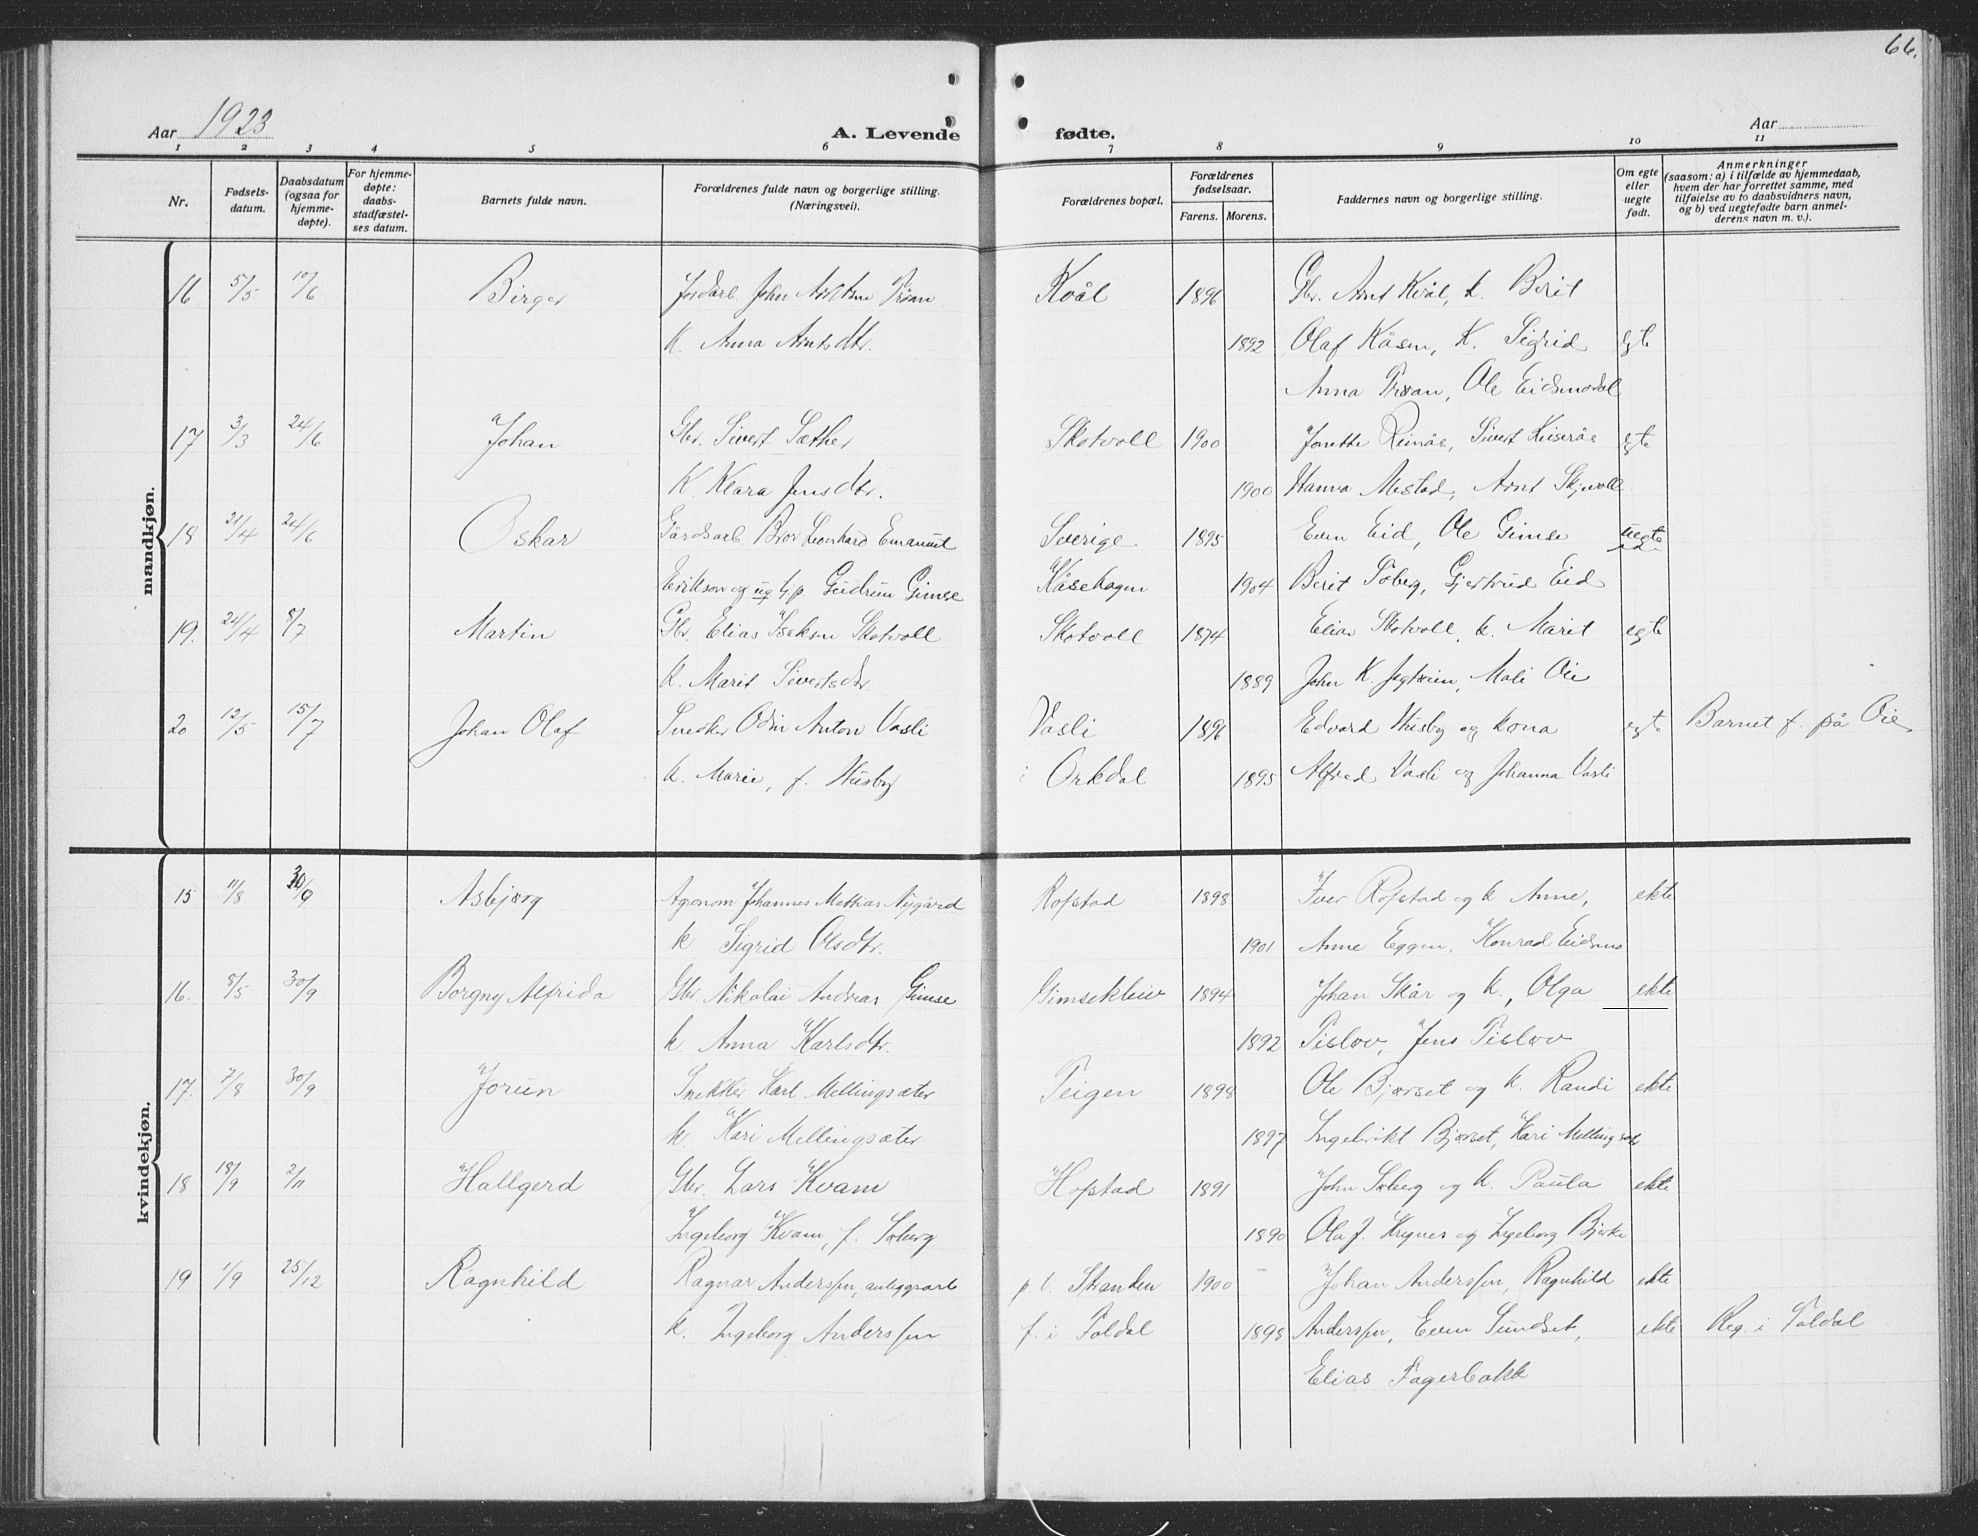 66.
Aar 1923 A. Levende fødte. Aar
1 2 3 4 5 6 7 8 9 10 11
Nr. Fødselsdatum. Daabsdatum (ogsaa for hjemmedøpte). For hjemmedøpte: daabsstadfæstelses datum. Barnets fulde navn. Forældrenes fulde navn og borgerlige stilling. (Næringsvei). Forældrenes bopæl. Forældrenes fødselsaar. Farens. Morens. Faddernes navn og borgerlige stilling. Om egte eller uegte født. Anmerkninger (saasom: a) i tilfælde av hjemmedaab, hvem der har forrettet samme, med tilføielse av to daabsvidners navn, og b) ved uegtefødte barn anmelderens navn m. v.).
mandkjøn.
16 5/5 10/6 Birger Jordarb. John Arntsen Trøan Kvål 1896 Gbr. Arnt Kvål, k. Berit
K. Anna Arntsdtr. 1892 Olaf Kåsen, K. Sigrid egte
Anna Trøan, Ole Eidsmodal
17 3/3 24/6 Johan Gbr. Sivert Sæther Skotvoll 1900 Jonette Reinås, Sivert egte
K. Klara Jensdtr. 1900 Hanna Mestad, Arnt Skjevoll
18 21/4 24/6 Oskar Gårdsarb. Bror Leonhard Emanuel Sverige 1895 Even Eid, Ole Gimse uegte
Erikson og ug. tjp. Gudrun Gimse Kåsehagen 1904 Berit Søberg, Gjertrud Eid
19. 24/4 8/7 Martin Gbr. Elias Iseksen Skotvoll Skotvoll 1874 Elias Skotvoll, k. Marit egte
k. Marit Sivertsdtr 1889 John K. Mali Øie
20 12/5 15/7 Johan Olaf Snedker Odin Anton Vasli Vasli 1896 Edvard Husby og kona egte Barnet f. på Øie
k. Marie, f. Husby i Orkdal 1895 Alfred Vasli og Johanna Vasli
kvindekjøn.
15 11/8 30/9 Asbjørg Agronom Johannes Mathias Nygård Rofstad 1898 Iver Rofstad og k Anne, ekte
k Sigrid Olsdtr. 1901 Anne Eggen, Konrad Eidsmo
16. 8/5 30/9 Borgny Alfrida Gbr. Nikolai Andreas Gimse Gimsekleiv 1894 Johan Skår og k., Olga ekte
k. Anna Karlsdtr. 1892 Tislov, Jens Tislov
17. 7/8 30/9 Jorun Snekker Karl Mellingsæter Teigen 1898 Ole Bjørset og k. Randi ekte
k. Kari Mellingsæter 1897 Ingebrikt Bjørset, Kari Mellingsæt
18 18/9 2/11 Hallgerd Gbr. Lars Kvam Hofstad 1891 John Søberg og k. Paula ekte
Ingeborg Kvam, f. Søberg 1890 Ola J. Krignes og Ingeborg Bjerke
19 1/9 25/12 Ragnhild Ragnar Anderssen, anleggsarb p. t. Stranden 1900 Johan Anderssen, Ragnhild ekte
k. Ingeborg Anderssen f. i Foldal 1898 Anderssen, Even Sundset, ekte Reg. i Foldal
Elias Fagerbakk